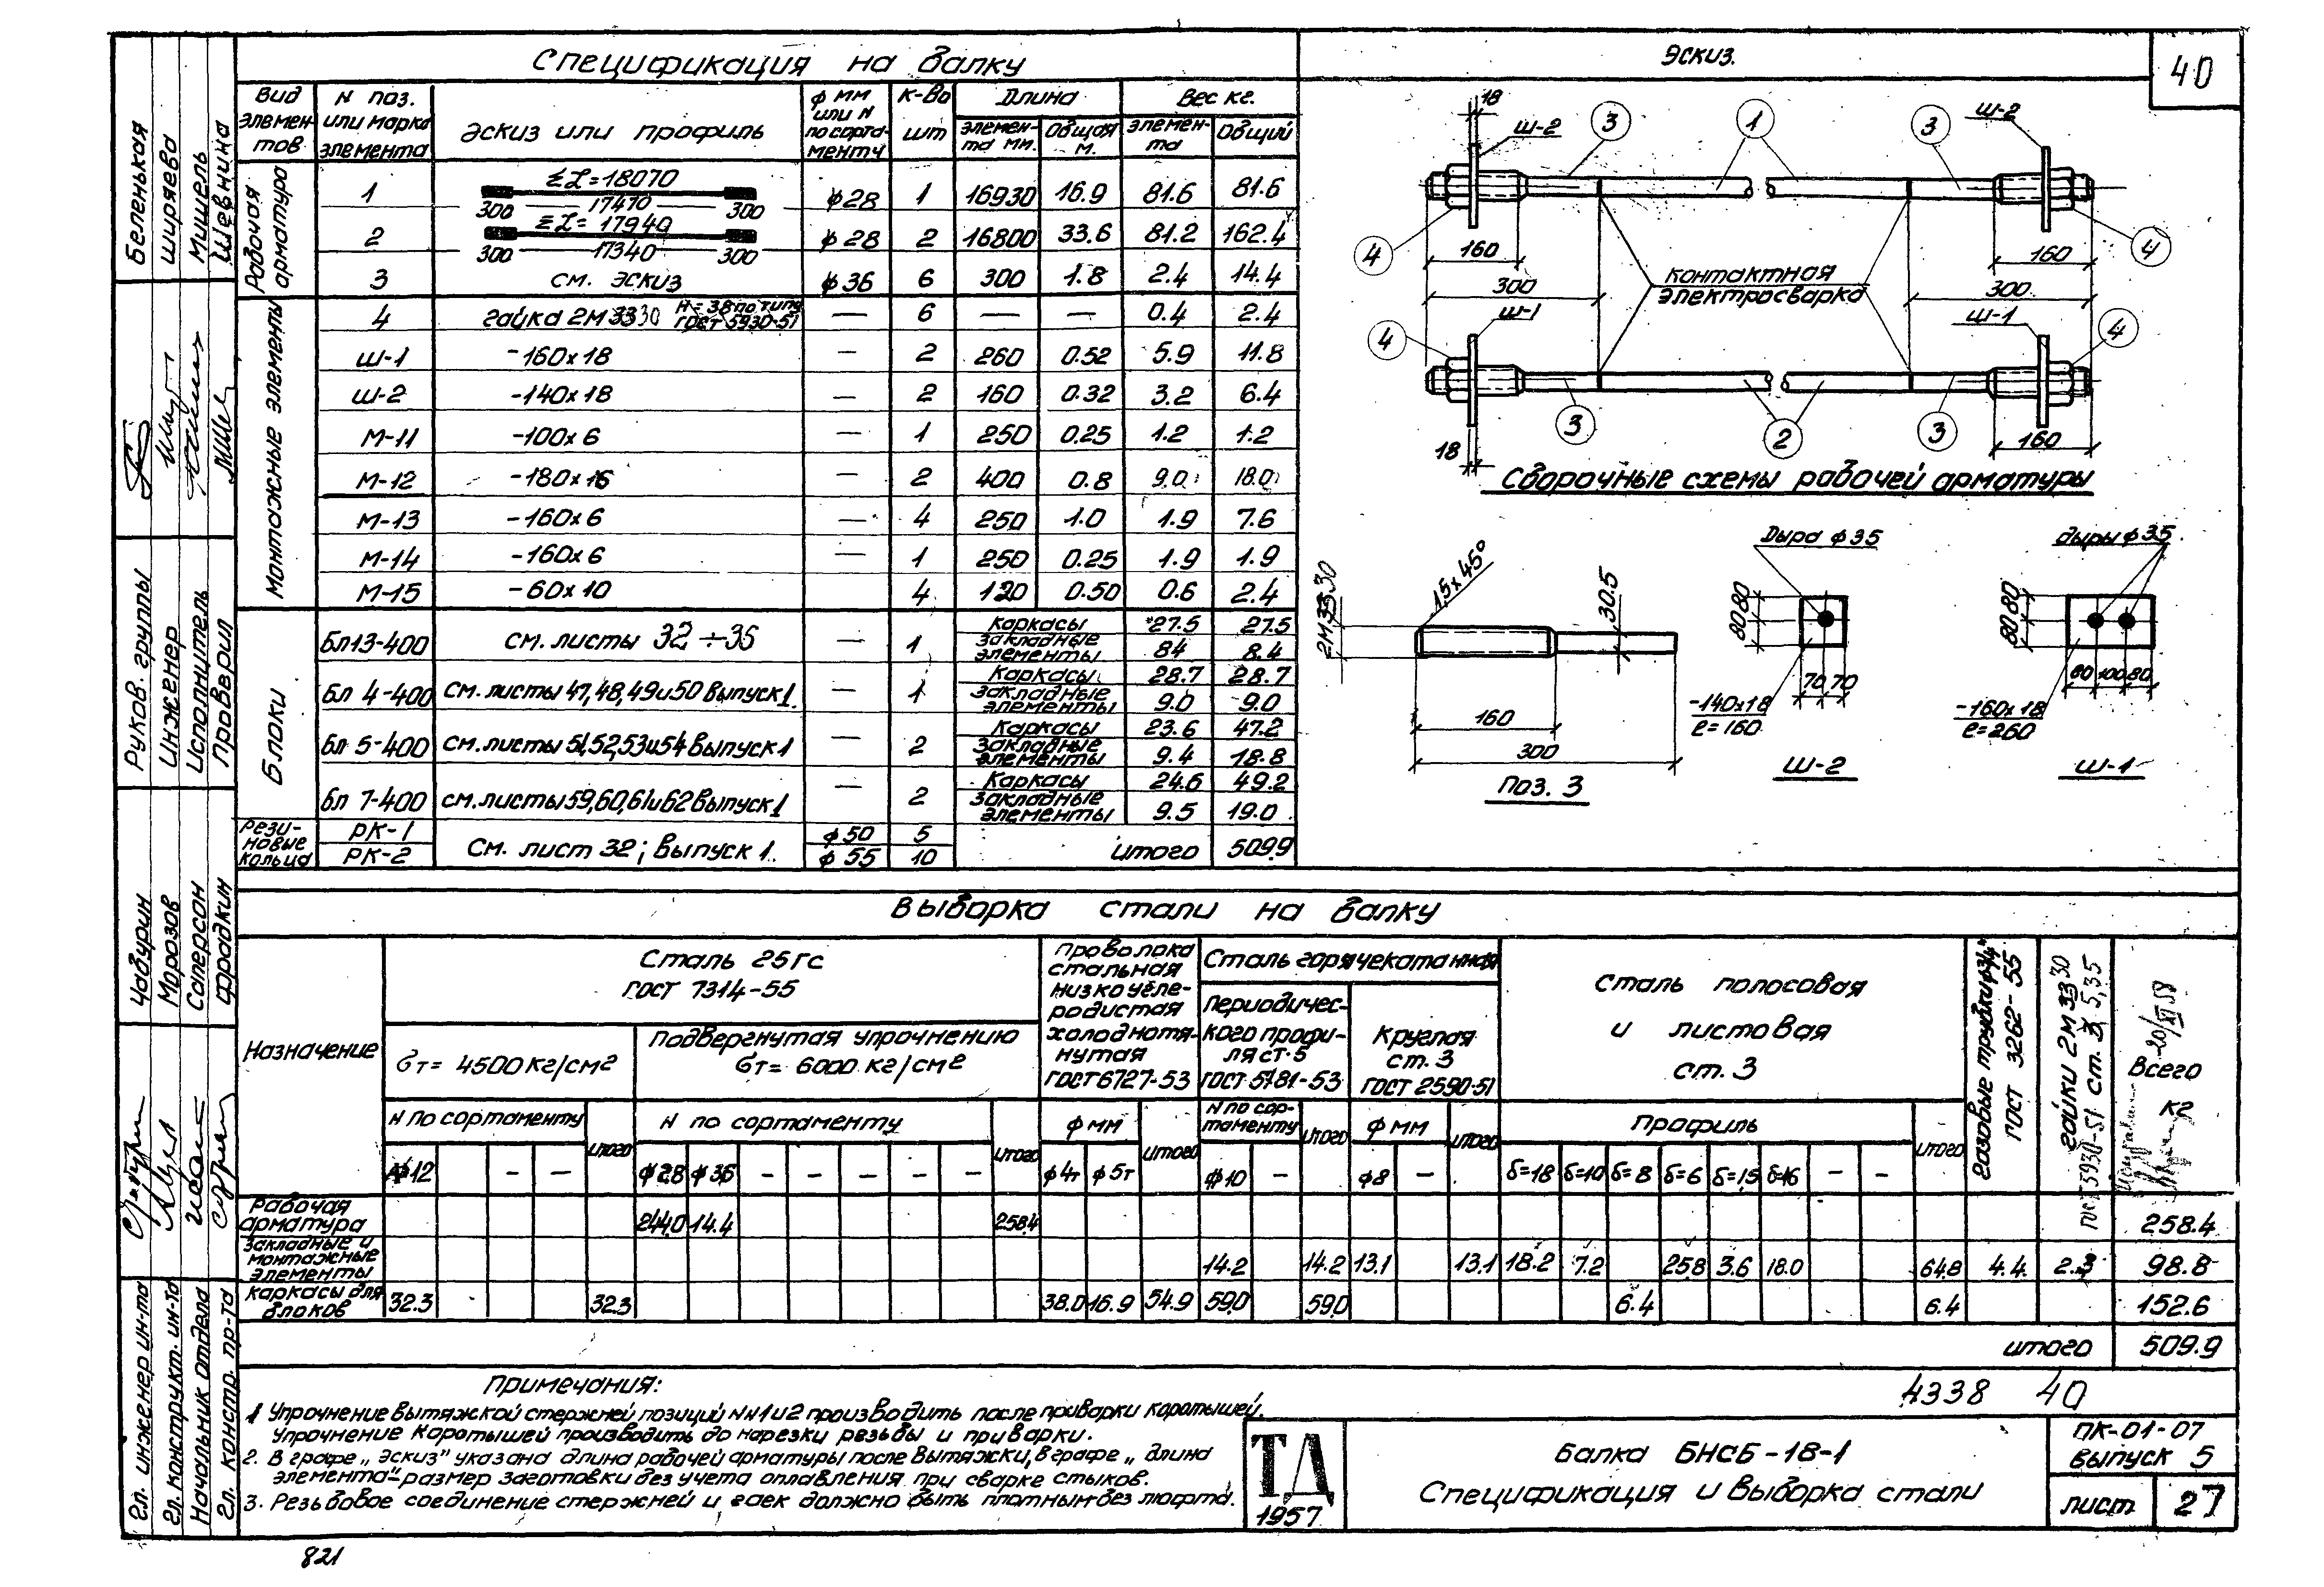 Спецификация на балку
Эскиз.
40
Вид элемен-тов | N поз. или марка элемента | Эскиз или профиль | ф мм или N по сорта-менту | К-во шт | Длина элемен-та мм. | Длина Общая м. | Вес кг. элемен-та | Вес кг. Общий
Рабочая арматура
1 | ΣL=18070 300 17470 300 | ф28 | 1 | 16930 | 16.9 | 81.6 | 81.6
2 | ΣL=17940 300 17340 300 | ф28 | 2 | 16800 | 33.6 | 81.2 | 162.4
3 | см. эскиз | ф36 | 6 | 300 | 1.8 | 2.4 | 14.4
Монтажные элементы
4 | гайка 2М 3330 Н=38 по типу ГОСТ 5930-51 | — | 6 | — | — | 0.4 | 2.4
Ш-1 | -160х18 | — | 2 | 260 | 0.52 | 5.9 | 11.8
Ш-2 | -140х18 | — | 2 | 160 | 0.32 | 3.2 | 6.4
М-11 | -100х6 | — | 1 | 250 | 0.25 | 1.2 | 1.2
М-12 | -180х16 | — | 2 | 400 | 0.8 | 9.0 | 18.0
М-13 | -160х6 | — | 4 | 250 | 1.0 | 1.9 | 7.6
М-14 | -160х6 | — | 1 | 250 | 0.25 | 1.9 | 1.9
М-15 | -60х10 | 4 | 120 | 0.50 | 0.6 | 2.4
Блоки
Бл13-400 | см. листы 32÷35 | — | 1 | Каркасы | 27.5 | 27.5
закладные элементы | 84 | 8.4
Бл 4-400 | см. листы 47, 48, 49 и 50 Выпуск 1. | — | 1 | Каркасы | 28.7 | 28.7
закладные элементы | 9.0 | 9.0
Бл 5-400 | см. листы 51,52,53 и 54 Выпуск 1 | — | 2 | Каркасы | 23.6 | 47.2
закладные элементы | 9.4 | 18.8
Бл 7-400 | см. листы 59,60,61 и 62 Выпуск 1 | — | 2 | Каркасы | 24.6 | 49.2
закладные элементы | 9.5 | 19.0
Рези-новые кольца | РК-1 | См. лист 32; Выпуск 1. | ф50 | 5
РК-2 | ф55 | 10 | Итого | 509.9
18 Ш-2 3 1 3 Ш-2
4 160 160 4
300 контактная электросварка 300
4 Ш-1 Ш-1 4
18 3 2 3 160
Сборочные схемы рабочей арматуры
2М 3330 1,5х45° 30.5
160
300
Поз. 3
Дыра ф35
80 80
70 70
-140х18
е=160
Ш-2
Дыры ф35
80 80
80 100 80
-160х18
е=260
Ш-1
Выборка стали на балку
Назначение
Сталь 25ГС
ГОСТ 7314-55
Бт= 4500 кг/см2
N по сортаменту | Итого
ф12 | – | –
Подвергнутая упрочнению
Бт= 6000 кг/см2
N по сортаменту | Итого
ф28 | ф36 | – | – | – | – | –
Проволока стальная низкоугле-родистая холоднотя-нутая ГОСТ 6727-53
ф мм | Итого
ф4т | ф5т
Сталь горячекатанная
Периодичес-кого профи-ля ст.5 ГОСТ 5781-53
N по сор-таменту | Итого
ф10 | –
Круглая ст. 3 ГОСТ 2590-51
ф мм | Итого
ф8 | –
Сталь полосовая
и листовая
ст. 3
Профиль | Итого
б=18 | б=10 | б=8 | б=6 | б=1,5 | б=16 | – | –
Газовые трубки ф3/4" ГОСТ 3262-55
Гайки 2М 3330 ГОСТ 5930-51 ст. 3 5,35
20/XI 58
Всего кг
Рабочая арматура | 244.0 | 14.4 | 258.4 | 258.4
Закладные и монтажные элементы | 14.2 | 14.2 | 13.1 | 13.1 | 18.2 | 7.2 | 25.8 | 3.6 | 18.0 | 64.8 | 4.4. | 2.3 | 98.8
Каркасы для блоков | 32.3 | 32.3 | 38.0 | 16.9 | 54.9 | 59.0 | 59.0 | 6.4 | 6.4 | 152.6
итого | 509.9
Примечания:
1 Упрочнение вытяжкой стержней позиций NN1и2 производить после приварки коротышей.
Упрочнение коротышей производить до нарезки резьбы и приварки.
2. В графе „Эскиз" указана длина рабочей арматуры после вытяжки, в графе „Длина
элемента"-размер заготовки без учета оплавления при сварке стыков.
3. Резьбовое соединение стержней и гаек должно быть плотным-без люфта.
4338 40
ТД
1957
Балка БНСБ-18-1
Спецификация и Выборка стали
ПК-01-07
Выпуск 5
лист 27
Гл. инженер ин-та Чабурин
Гл. конструкт. ин-та Морозов
Начальник отдела Саперсон
Гл. констр. пр-та Фрадкин
Руков. группы Беленькая
Инженер Ширяева
Исполнитель Мишель
Проверил Шевнина
821